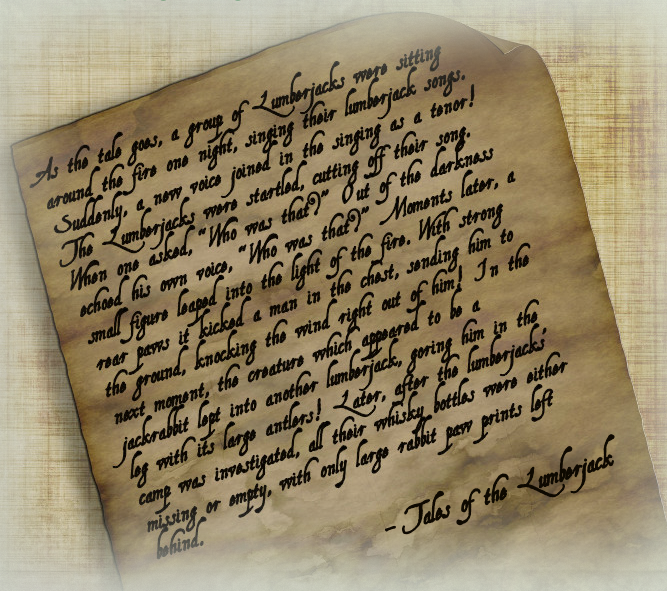 As the tale goes, a group of Lumberjacks were sitting
around the fire one night, singing their lumberjack songs.
Suddenly, a new voice joined in the singing as a tenor!
The Lumberjacks were startled, cutting off their song.
When one asked, "Who was that?" Out of the darkness
echoed his own voice, "Who was that?" Moments later, a
small figure leaped into the light of the fire. With strong
rear paws it kicked a man in the chest, sending him to
the ground, knocking the wind right out of him! In the
next moment, the creature which appeared to be a
jackrabbit lept into another lumberjack, goring him in the
leg with its large antlers! Later, after the lumberjacks'
camp was investigated, all their whisky bottles were either
missing or empty, with only large rabbit paw prints left
behind.
- Tales of the Lumberjack